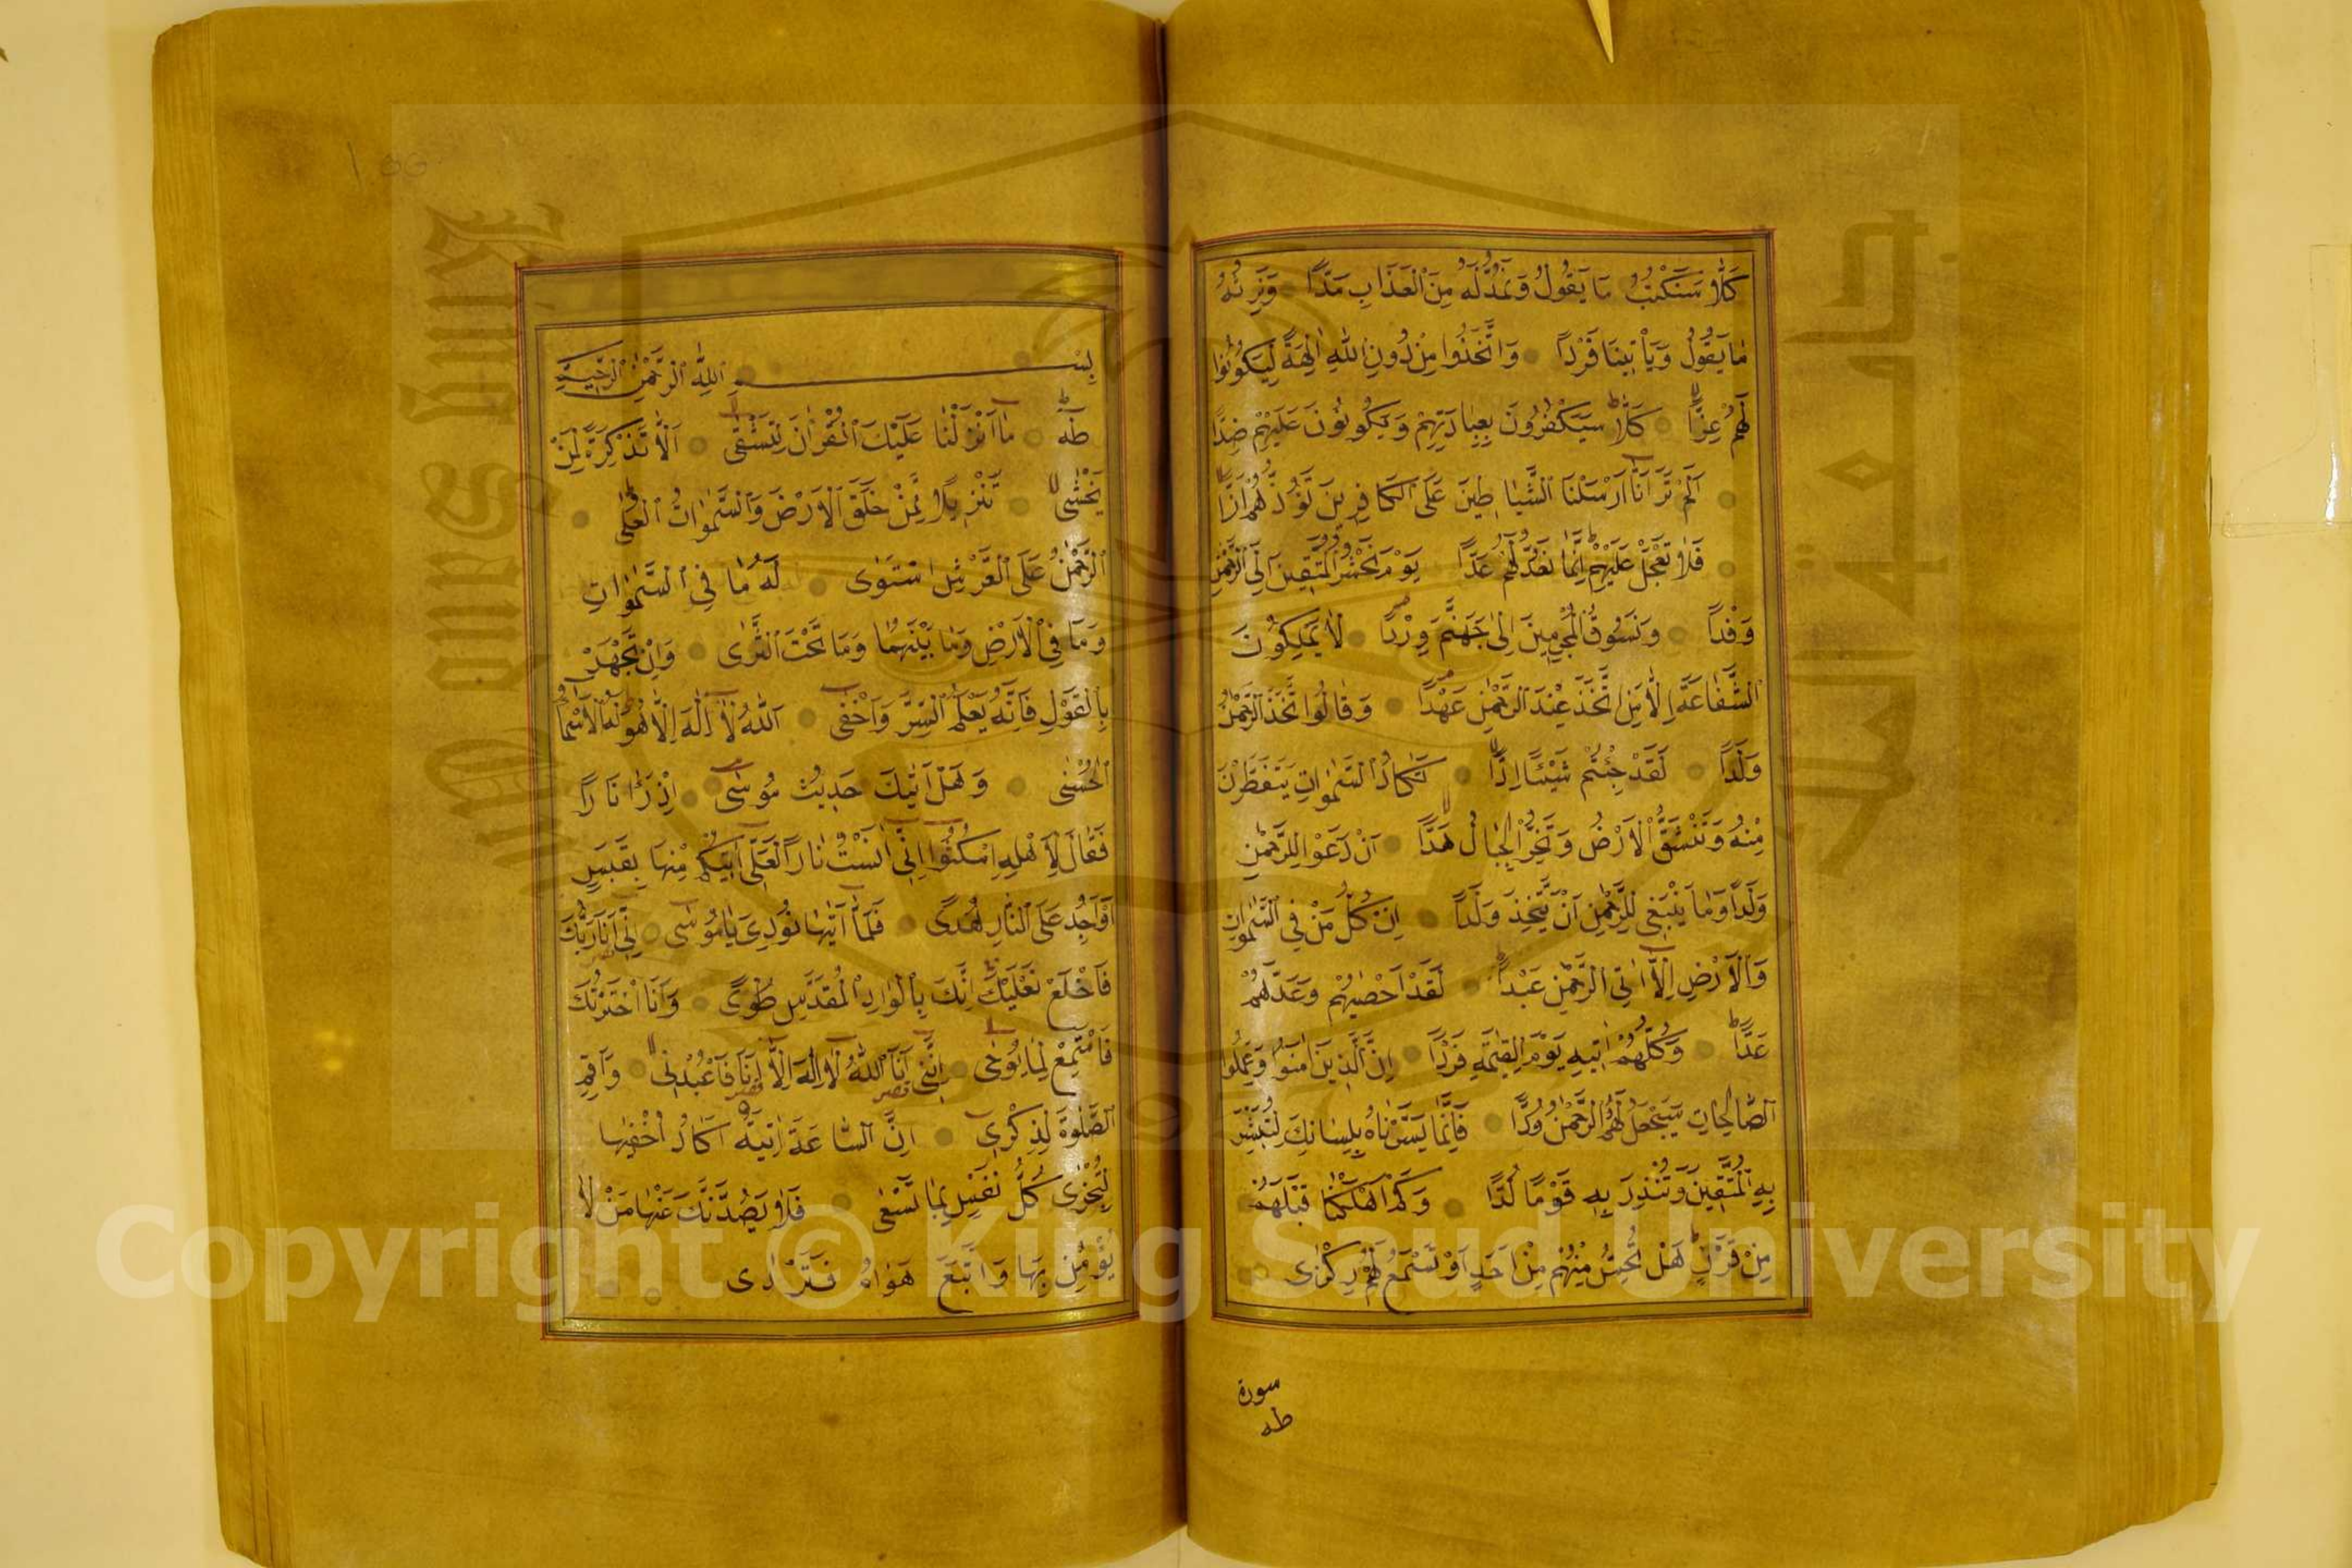 كَلَّا سَنَكْتُبُ مَا يَقُولُ وَنَمُدُّ لَهُ مِنَ الْعَذَابِ مَدًّا وَنَرِثُهُ
مَا يَقُولُ وَيَأْتِينَا فَرْدًا وَاتَّخَذُوا مِنْ دُونِ اللهِ اٰلِهَةً لِيَكُونُوا
لَهُمْ عِزًّا كَلَّا سَيَكْفُرُونَ بِعِبَادَتِهِمْ وَيَكُونُونَ عَلَيْهِمْ ضِدًّا
اَلَمْ تَرَ اَنَّا اَرْسَلْنَا الشَّيَاطِينَ عَلَى الْكَافِرِينَ تَؤُزُّهُمْ اَزًّا
فَلَا تَعْجَلْ عَلَيْهِمْ اِنَّمَا نَعُدُّ لَهُمْ عَدًّا يَوْمَ نَحْشُرُ الْمُتَّقِينَ اِلَى الرَّحْمٰنِ
وَفْدًا وَنَسُوقُ الْمُجْرِمِينَ اِلٰى جَهَنَّمَ وِرْدًا لَا يَمْلِكُونَ
الشَّفَاعَةَ اِلَّا مَنِ اتَّخَذَ عِنْدَ الرَّحْمٰنِ عَهْدًا وَقَالُوا اتَّخَذَ الرَّحْمٰنُ
وَلَدًا لَقَدْ جِئْتُمْ شَيْئًا اِدًّا تَكَادُ السَّمٰوَاتِ يَتَفَطَّرْنَ
مِنْهُ وَتَنْشَقُّ الْاَرْضُ وَتَخِرُّ الْجِبَالُ هَدًّا اَنْ دَعَوْا لِلرَّحْمٰنِ
وَلَدًا وَمَا يَنْبَغِي لِلرَّحْمٰنِ اَنْ يَتَّخِذَ وَلَدًا اِنْ كُلُّ مَنْ فِي السَّمٰوَاتِ
وَالْاَرْضِ اِلَّا اٰتِي الرَّحْمٰنِ عَبْدًا لَقَدْ اَحْصٰيهُمْ وَعَدَّهُمْ
عَدًّا وَكُلُّهُمْ اٰتِيهِ يَوْمَ الْقِيٰمَةِ فَرْدًا اِنَّ الَّذِينَ اٰمَنُوا وَعَمِلُوا
الصَّالِحَاتِ سَيَجْعَلُ لَهُمُ الرَّحْمٰنُ وُدًّا فَاِنَّمَا يَسَّرْنَاهُ بِلِسَانِكَ لِتُبَشِّرَ
بِهِ الْمُتَّقِينَ وَتُنْذِرَ بِهِ قَوْمًا لُدًّا وَكَمْ اَهْلَكْنَا قَبْلَهُمْ
مِنْ قَرْنٍ هَلْ تُحِسُّ مِنْهُمْ مِنْ اَحَدٍ اَوْ تَسْمَعُ لَهُمْ رِكْزًا
سورة
طه
بِسْمِ اللهِ الرَّحْمٰنِ الرَّحِيمِ
طٰهٰ مَا اَنْزَلْنَا عَلَيْكَ الْقُرْاٰنَ لِتَشْقٰى اِلَّا تَذْكِرَةً لِمَنْ
يَخْشٰى تَنْزِيلًا مِمَّنْ خَلَقَ الْاَرْضَ وَالسَّمٰوَاتِ الْعُلٰى
الرَّحْمٰنُ عَلَى الْعَرْشِ اسْتَوٰى لَهُ مَا فِي السَّمٰوَاتِ
وَمَا فِي الْاَرْضِ وَمَا بَيْنَهُمَا وَمَا تَحْتَ الثَّرٰى وَاِنْ تَجْهَرْ
بِالْقَوْلِ فَاِنَّهُ يَعْلَمُ السِّرَّ وَاَخْفٰى اَللهُ لَا اِلٰهَ اِلَّا هُوَ لَهُ الْاَسْمَاءُ
الْحُسْنٰى وَهَلْ اَتٰيكَ حَدِيثُ مُوسٰى اِذْ رَاٰ نَارًا
فَقَالَ لِاَهْلِهِ امْكُثُوا اِنِّي اٰنَسْتُ نَارًا لَعَلِّي اٰتِيكُمْ مِنْهَا بِقَبَسٍ
اَوْ اَجِدُ عَلَى النَّارِ هُدًى فَلَمَّا اَتٰيهَا نُودِيَ يَا مُوسٰى اِنِّي اَنَا رَبُّكَ
فَاخْلَعْ نَعْلَيْكَ اِنَّكَ بِالْوَادِ الْمُقَدَّسِ طُوًى وَاَنَا اخْتَرْتُكَ
فَاسْتَمِعْ لِمَا يُوحٰى اِنَّنِي اَنَا اللهُ لَا اِلٰهَ اِلَّا اَنَا فَاعْبُدْنِي وَاَقِمِ
الصَّلٰوةَ لِذِكْرِي اِنَّ السَّاعَةَ اٰتِيَةٌ اَكَادُ اُخْفِيهَا
لِتُجْزٰى كُلُّ نَفْسٍ بِمَا تَسْعٰى فَلَا يَصُدَّنَّكَ عَنْهَا مَنْ لَا
يُؤْمِنُ بِهَا وَاتَّبَعَ هَوٰيهُ فَتَرْدٰى
Copyright © King Saud University
King Saud University